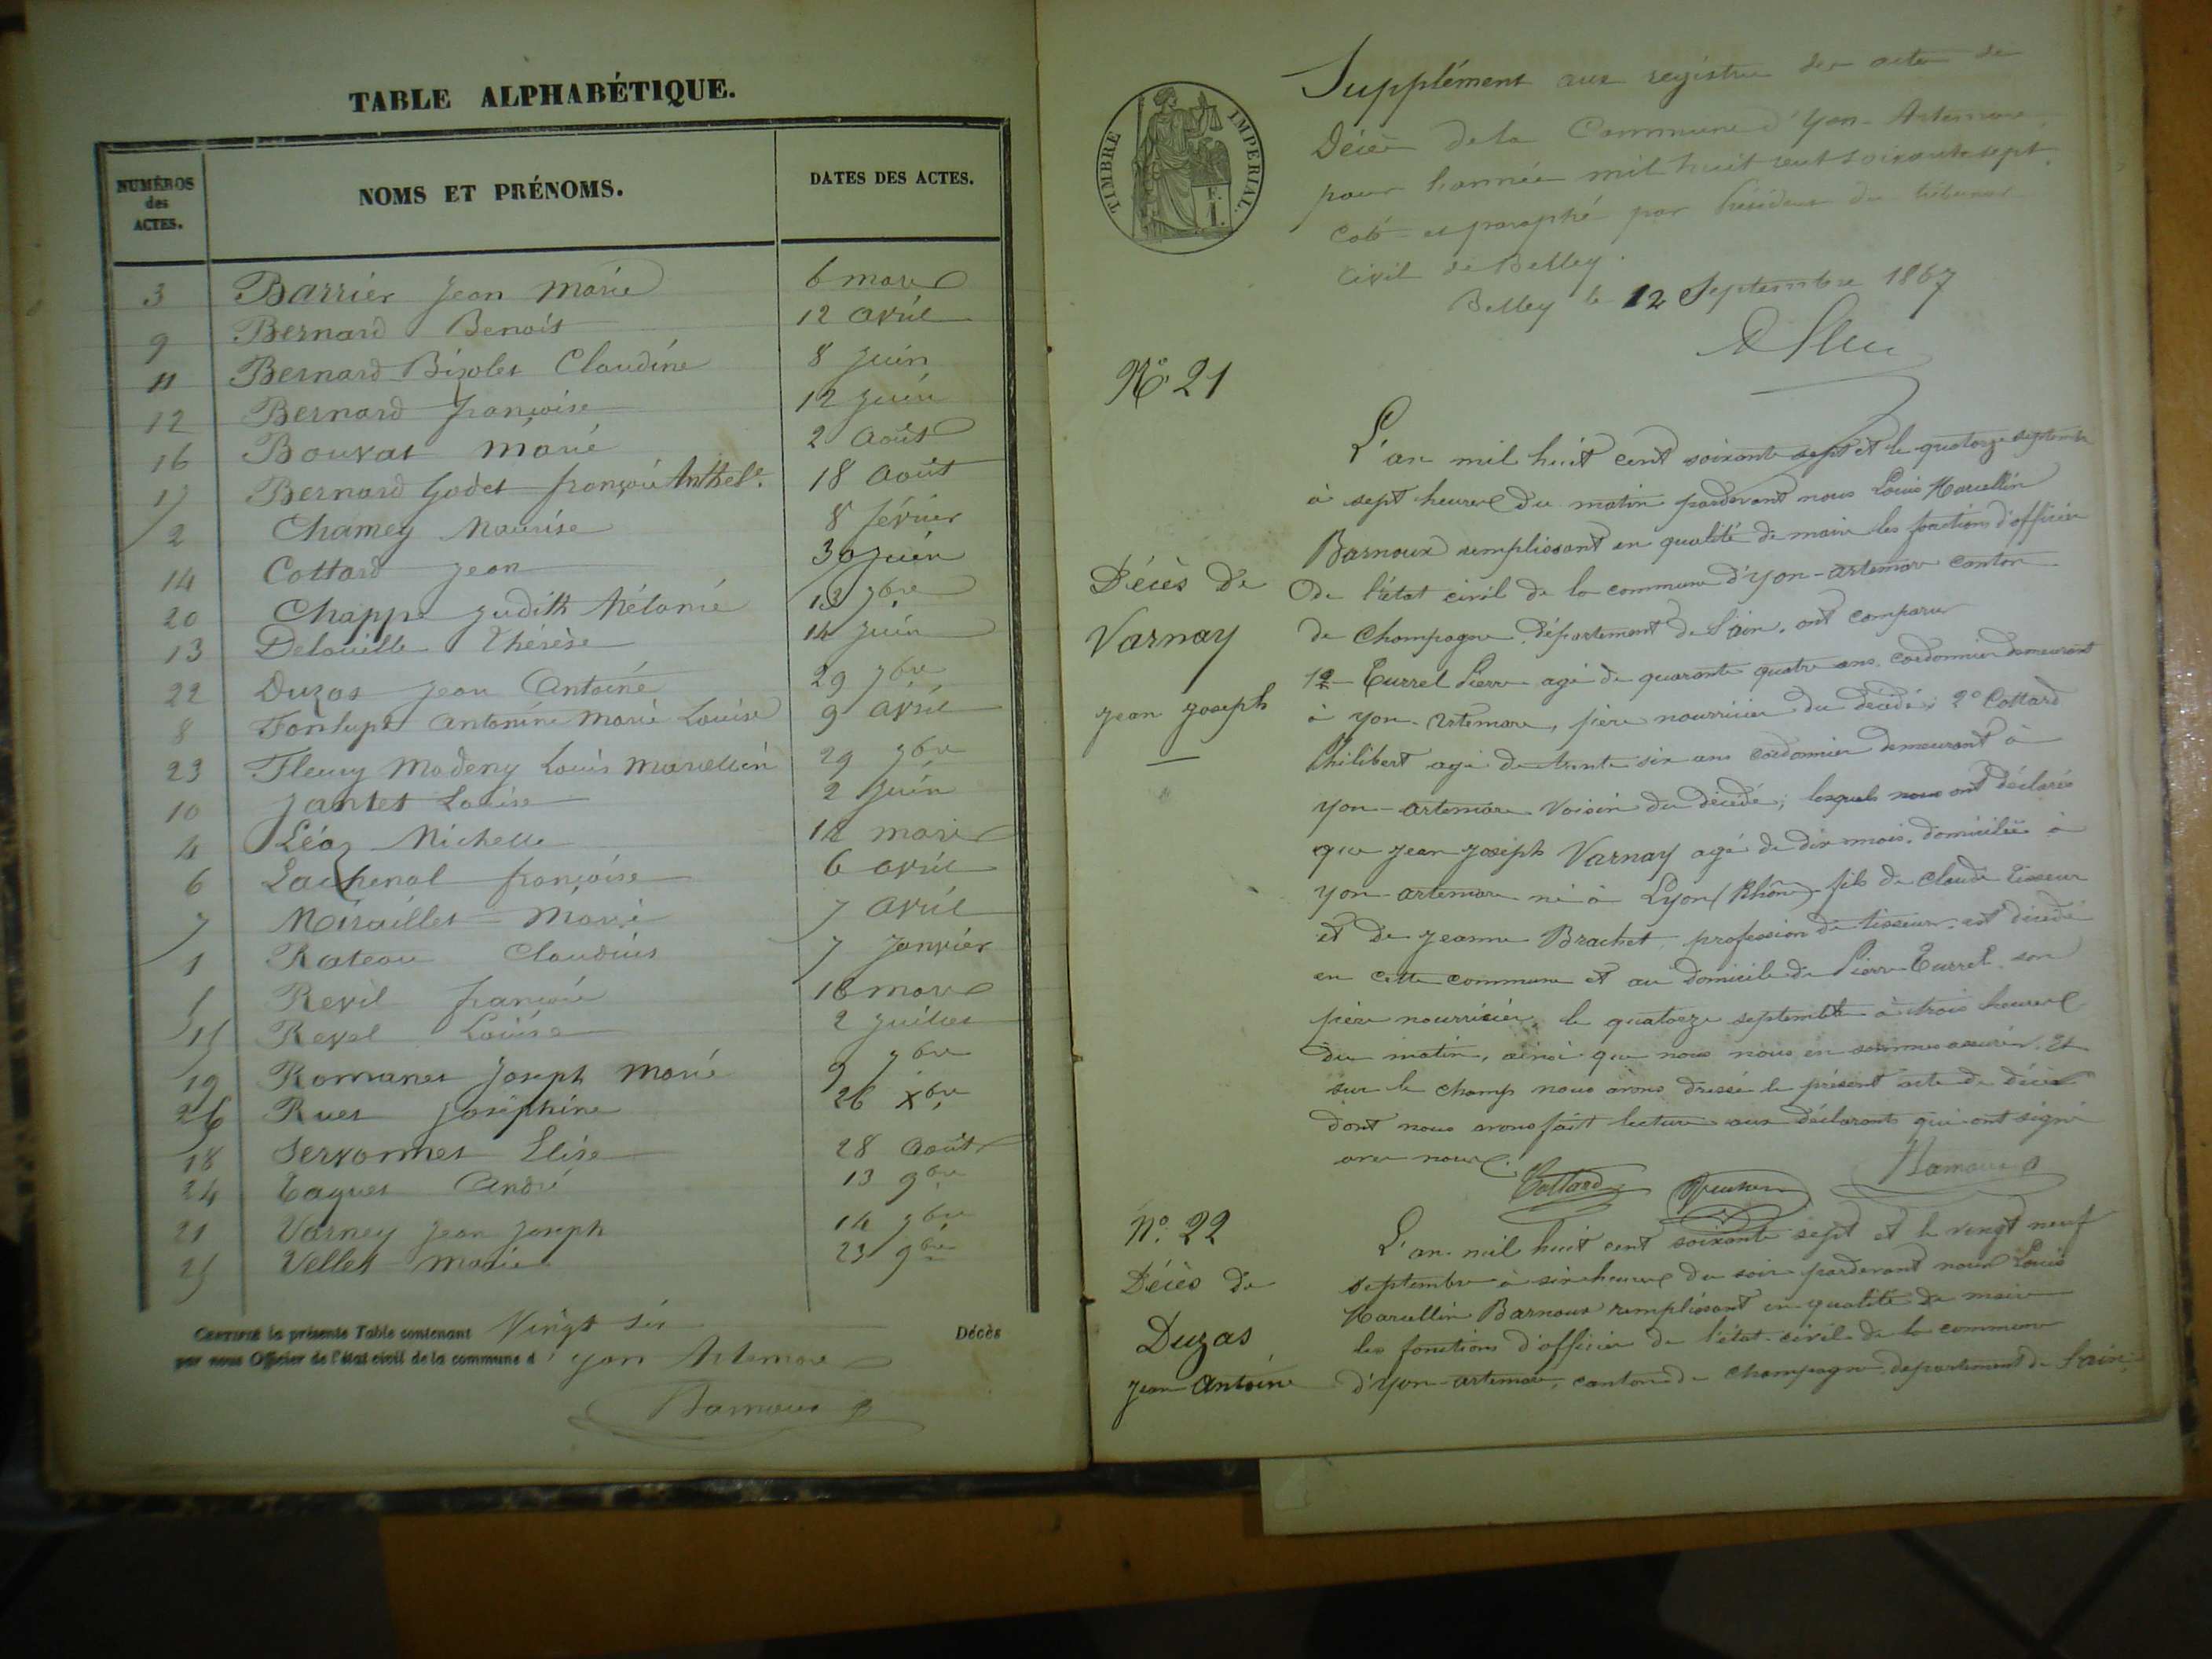 TABLE ALPHABÉTIQUE.
NUMÉROS des ACTES. NOMS ET PRÉNOMS. DATES DES ACTES.
3 Barrier Jean Marie 6 mars
9 Bernard Benoit 12 avril
11 Bernard Bizolet Claudine 8 juin
12 Bernard françoise 12 juin
16 Bouvat Marie 2 août
17 Bernard Godet françoise Anthel. 18 août
2 Chamey Maurise 8 février
14 Cottard Jean 30 juin
20 Chappe Judith Mélanie 13 7bre
13 Delouille Thérèse 14 juin
22 Duzas Jean Antoine 29 7bre
8 Fonlupt Antonine Marie Louise 9 avril
23 Fleury Madeny Louis Marcellin 29 7bre
10 Jantet Louise 2 juin
4 Léaz Michelle 12 mars
6 Lachenal françoise 6 avril
7 Miraillet Marie 7 avril
1 Rateau Claudius 7 Janvier
5 Revil 16 mars
15 Revel Louise 2 juillet
19 Romanet Joseph Marie 9 7bre
26 Ruet Joséphine 26 Xbre
18 Servonnet Elise 28 août
24 Taguet André 13 9bre
21 Varney Jean Joseph 14 7bre
25 Vellet Marie 23 9bre
CERTIFIÉ la présente Table contenant Vingt six Décès
par nous Officier de l'état civil de la commune d' yon Artemare
Barnoux
TIMBRE IMPERIAL.
Supplément aux registres des actes de
Décès de la Commune d'Yon-Artemare
pour l'année mil huit cent soixante sept
Coté et paraphé par Président du tribunal
civil de Belley.
Belley le 12 Septembre 1867
N° 21
Décès de
Varnay
Jean Joseph
L'an mil huit cent soixante sept et le quatorze septembre
à sept heures du matin pardevant nous Louis Marcellin
Barnoux remplissant en qualité de maire les fonctions d'officier
de l'état civil de la commune d'yon-artemare canton
de Champagne, département de l'ain, ont comparu
1° Turrel Pierre agé de quarante quatre ans cordonnier demeurant
à yon-Artemare, père nourricier du décédé; 2° Cottard
Philibert agé de trente six ans cordonnier demeurant à
yon-artemare voisin du décédé; lesquels nous ont déclarés
que Jean Joseph Varnay agé de dix mois, domicilié à
yon-artemare né à Lyon (Rhône) fils de Claude Tisseur
et de Jeanne Brachet, profession de tisseur, est décédé
en cette commune et au domicile de Pierre Turrel son
père nourricier, le quatorze septembre à trois heures
du matin, ainsi que nous nous en sommes assurés. Et
sur le champ nous avons dressé le présent acte de décès
dont nous avons fait lecture aux déclarants qui ont signé
avec nous.
Cottard Barnoux
N° 22
Décès de
Duzas
Jean Antoine
L'an mil huit cent soixante sept et le vingt neuf
septembre à six heures du soir pardevant nous Louis
Marcellin Barnoux remplissant en qualité de maire
les fonctions d'officier de l'état-civil de la commune
d'yon-artemare, canton de Champagne département de l'ain,